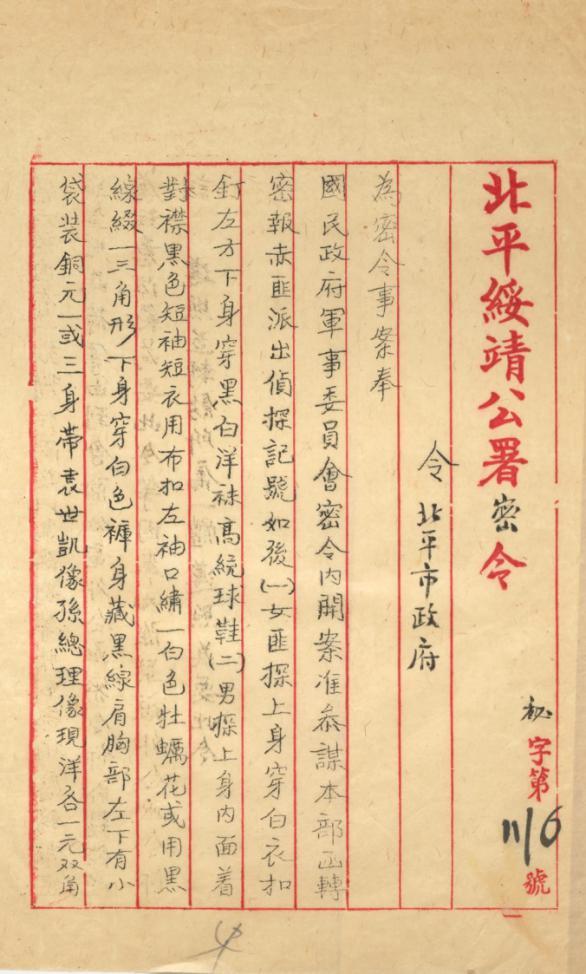 北平綏靖公署密令
秘字第116號
令北平市政府
為密令事案奉
國民政府軍事委員會密令內開案准參謀本部函轉
密報赤匪派出偵探記號如後(一)女匪探上身穿白衣扣
釘左方下身穿黑白洋袜高統球鞋(二)男探上身內面着
對襟黑色短袖短衣用布扣左袖口繡一白色牡蠣花或用黑
線綴一三角形下身穿白色褲身藏黑線肩胸部左下有小
袋裝銅元一或三身帶袁世凱像孫總理像現洋各一元双角